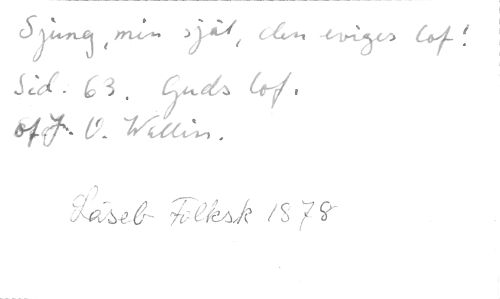 Sjung, min själ, den eviges lof!
Sid. 63. Guds lof.
af J. O. Wallin.
Läseb Folksk 1878